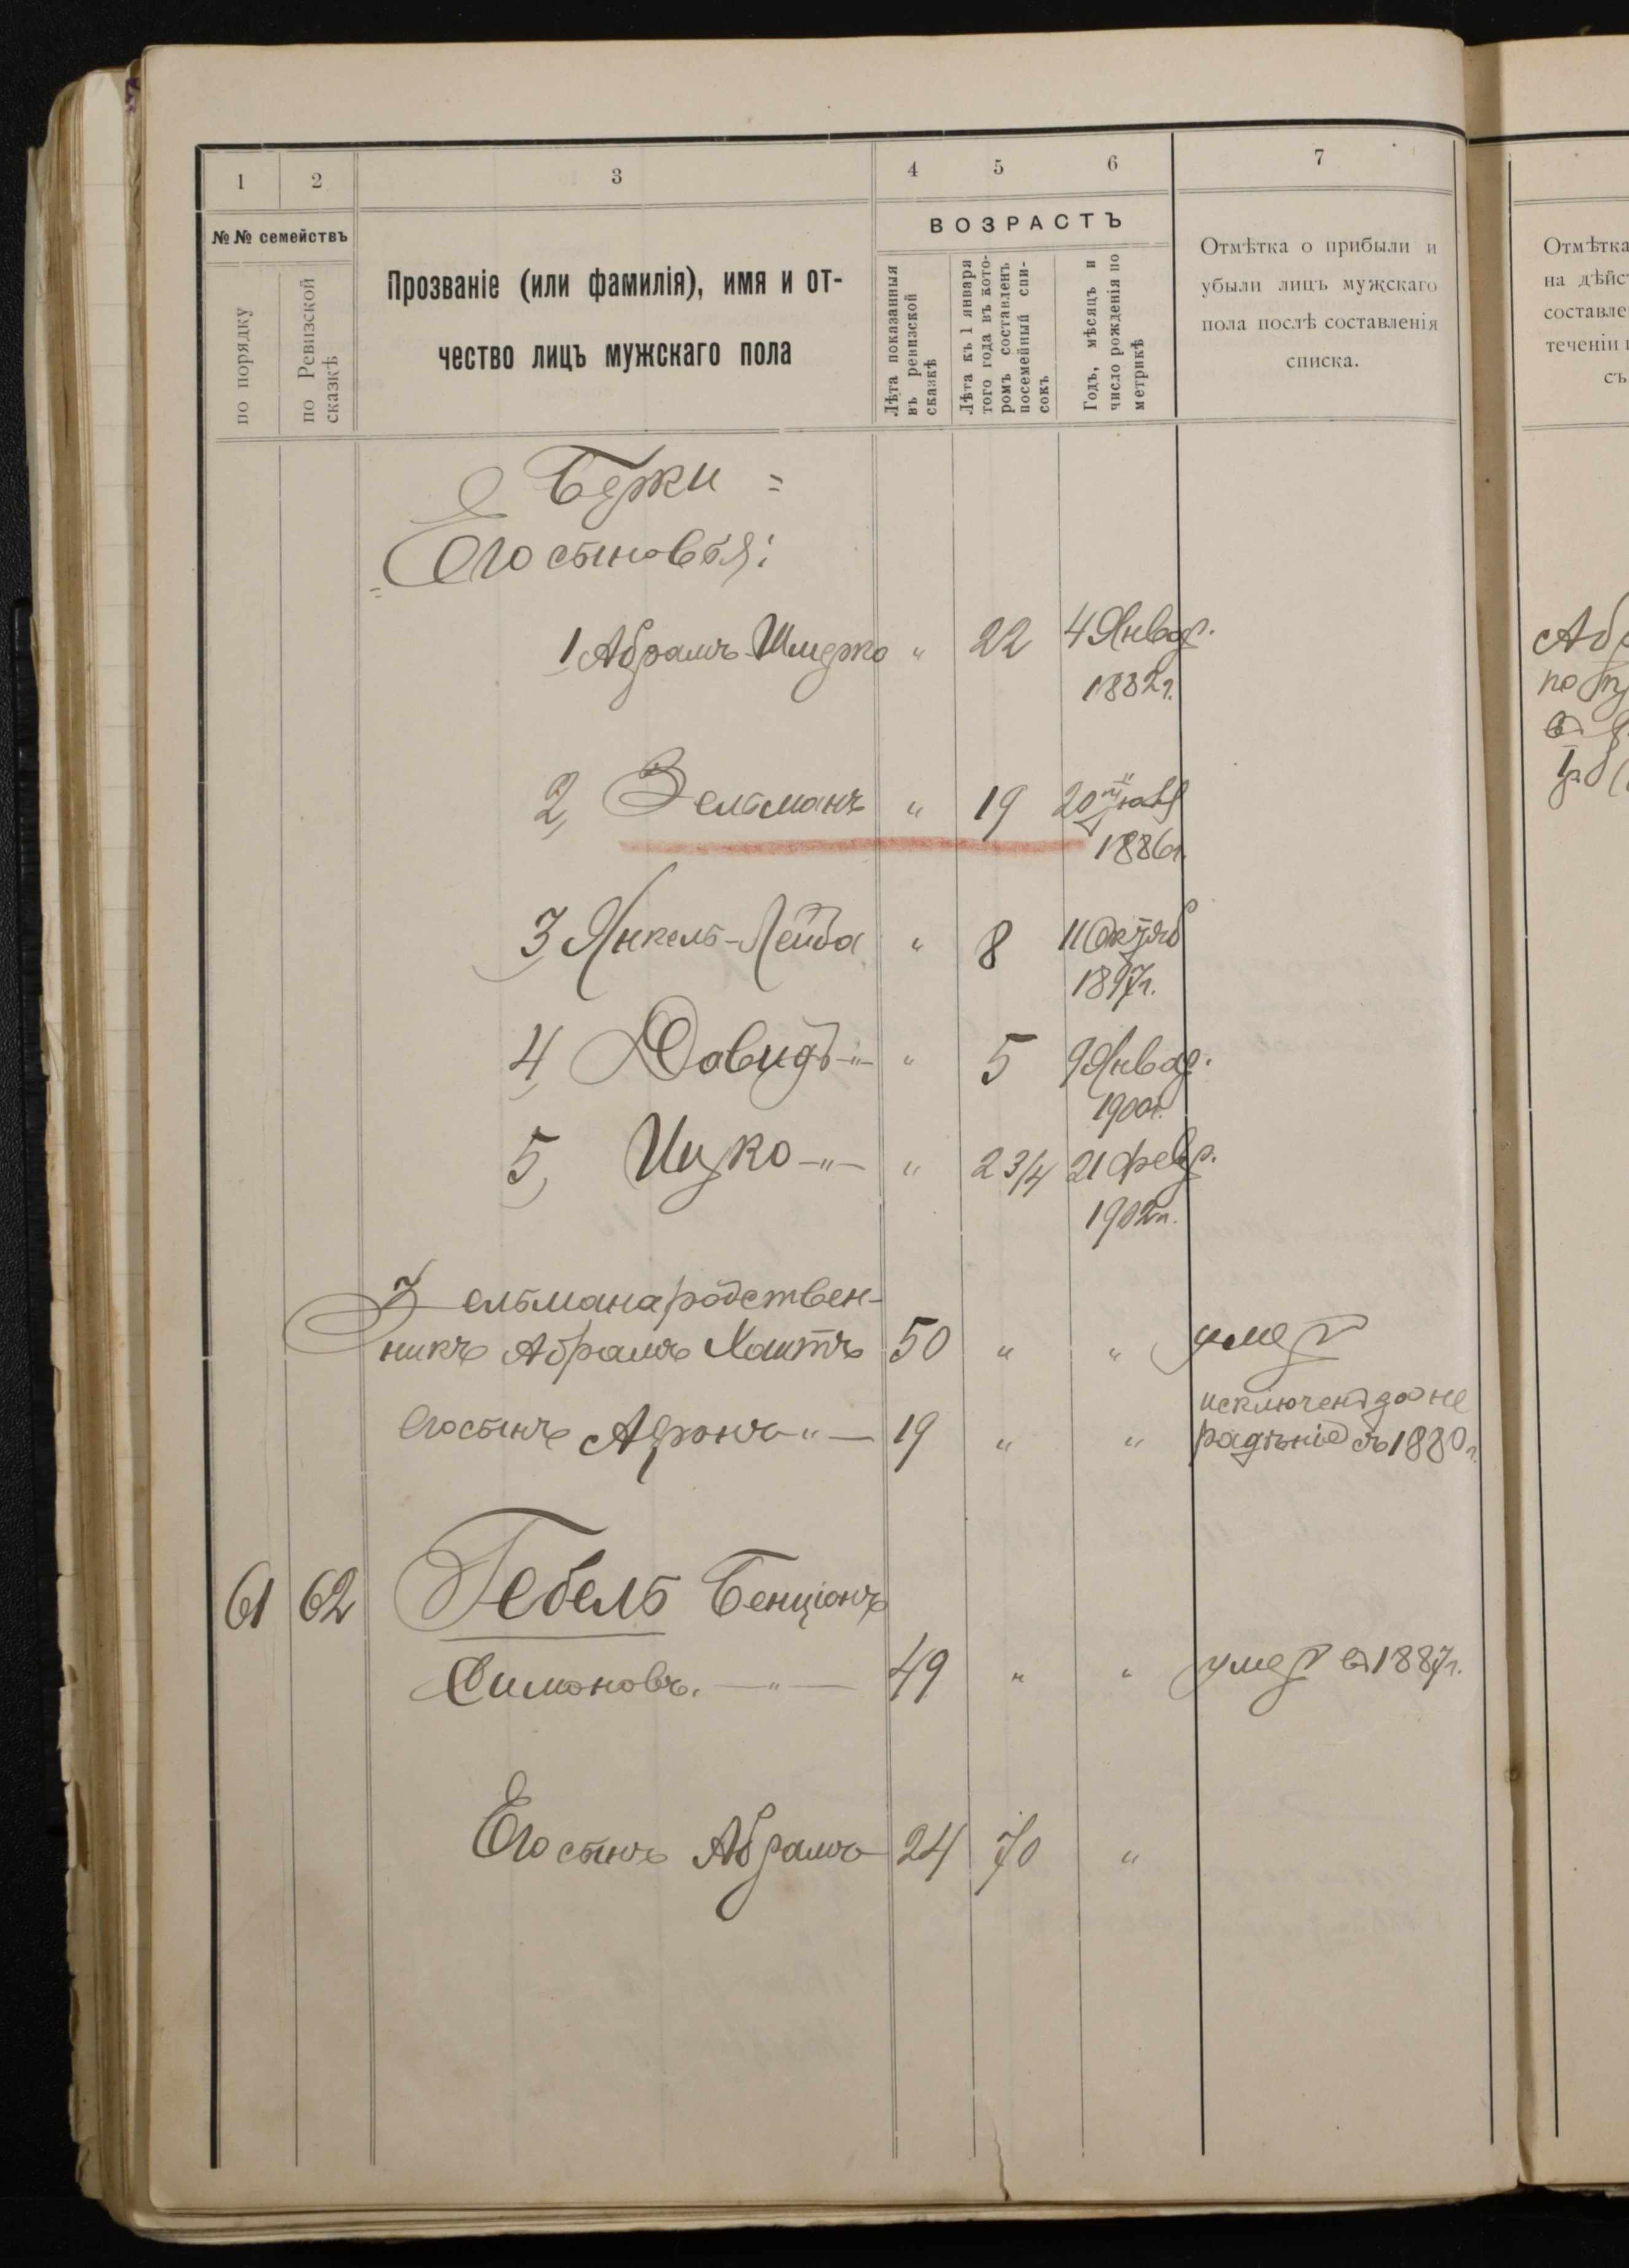 1 2 3 4 5 6 7
№№ семействъ
по порядку
по Ревизской
сказкѣ
Прозваніе (или фамилія), имя и от-
чество лицъ мужскаго пола
ВОЗРАСТЪ
Лѣта показанныя
въ ревизской
сказкѣ
Лѣта къ 1 января
того года въ кото-
ромъ составленъ
посемейный спи-
сокъ
Годъ, мѣсяцъ и
число рожденія по
метрикѣ
Отмѣтка о прибыли и
убыли лицъ мужскаго
пола послѣ составленія
списка.
Отмѣтка
на дѣйс
составле
теченіи
съ
Берки =
= Его сыновья:
1 Абрамъ Шмерко " 22 4 Январ.
1882 г.
2, Зельманъ " 19 20
1886 г.
3, Янкель-Лейба " 8 11 Октяб
1897 г.
4, Давидъ -"- " 5 9 Январ.
1900 г.
5, Ицко -"- " 2 3/4 21 февр.
1902 г.
Зельмана родствен-
никъ Абрамъ 50 " " умер
Его сынъ Аронъ -"- 19 " " исключенъ за не
радѣніе въ 1880 г.
61 62 Гебель Бенціонъ
Симоновъ. -"- 49 " " умер въ 1887 г.
Его сынъ Абрамъ 24 70 "
Аб
по